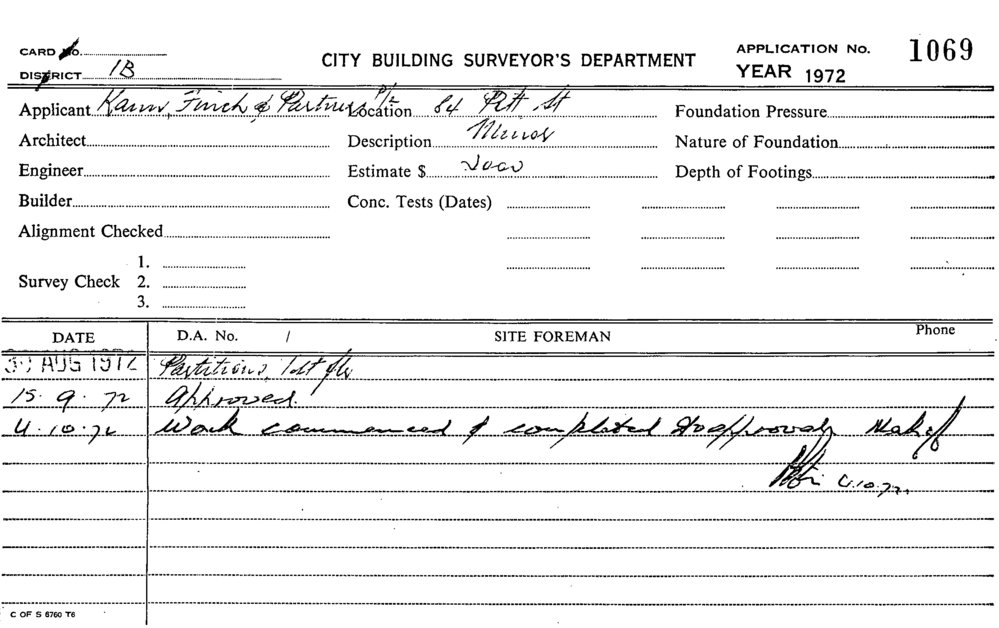 CARD No.
CITY BUILDING SURVEYOR'S DEPARTMENT
APPLICATION No. 1069
DISTRICT 1B
YEAR 1972
Applicant Kann, Finch & Partners P/L
Location 84 Pitt St
Foundation Pressure
Architect
Description Minor
Nature of Foundation
Engineer
Estimate $ 2000
Depth of Footings
Builder
Conc. Tests (Dates)
Alignment Checked
Survey Check 1.
2.
3.
DATE D.A. No. / SITE FOREMAN Phone
30 AUG 1972 Partitions, 1st flr
15.9.72 Approved.
4.10.72 Work commenced & completed to approval
4.10.72.
C OF S 6760 T6